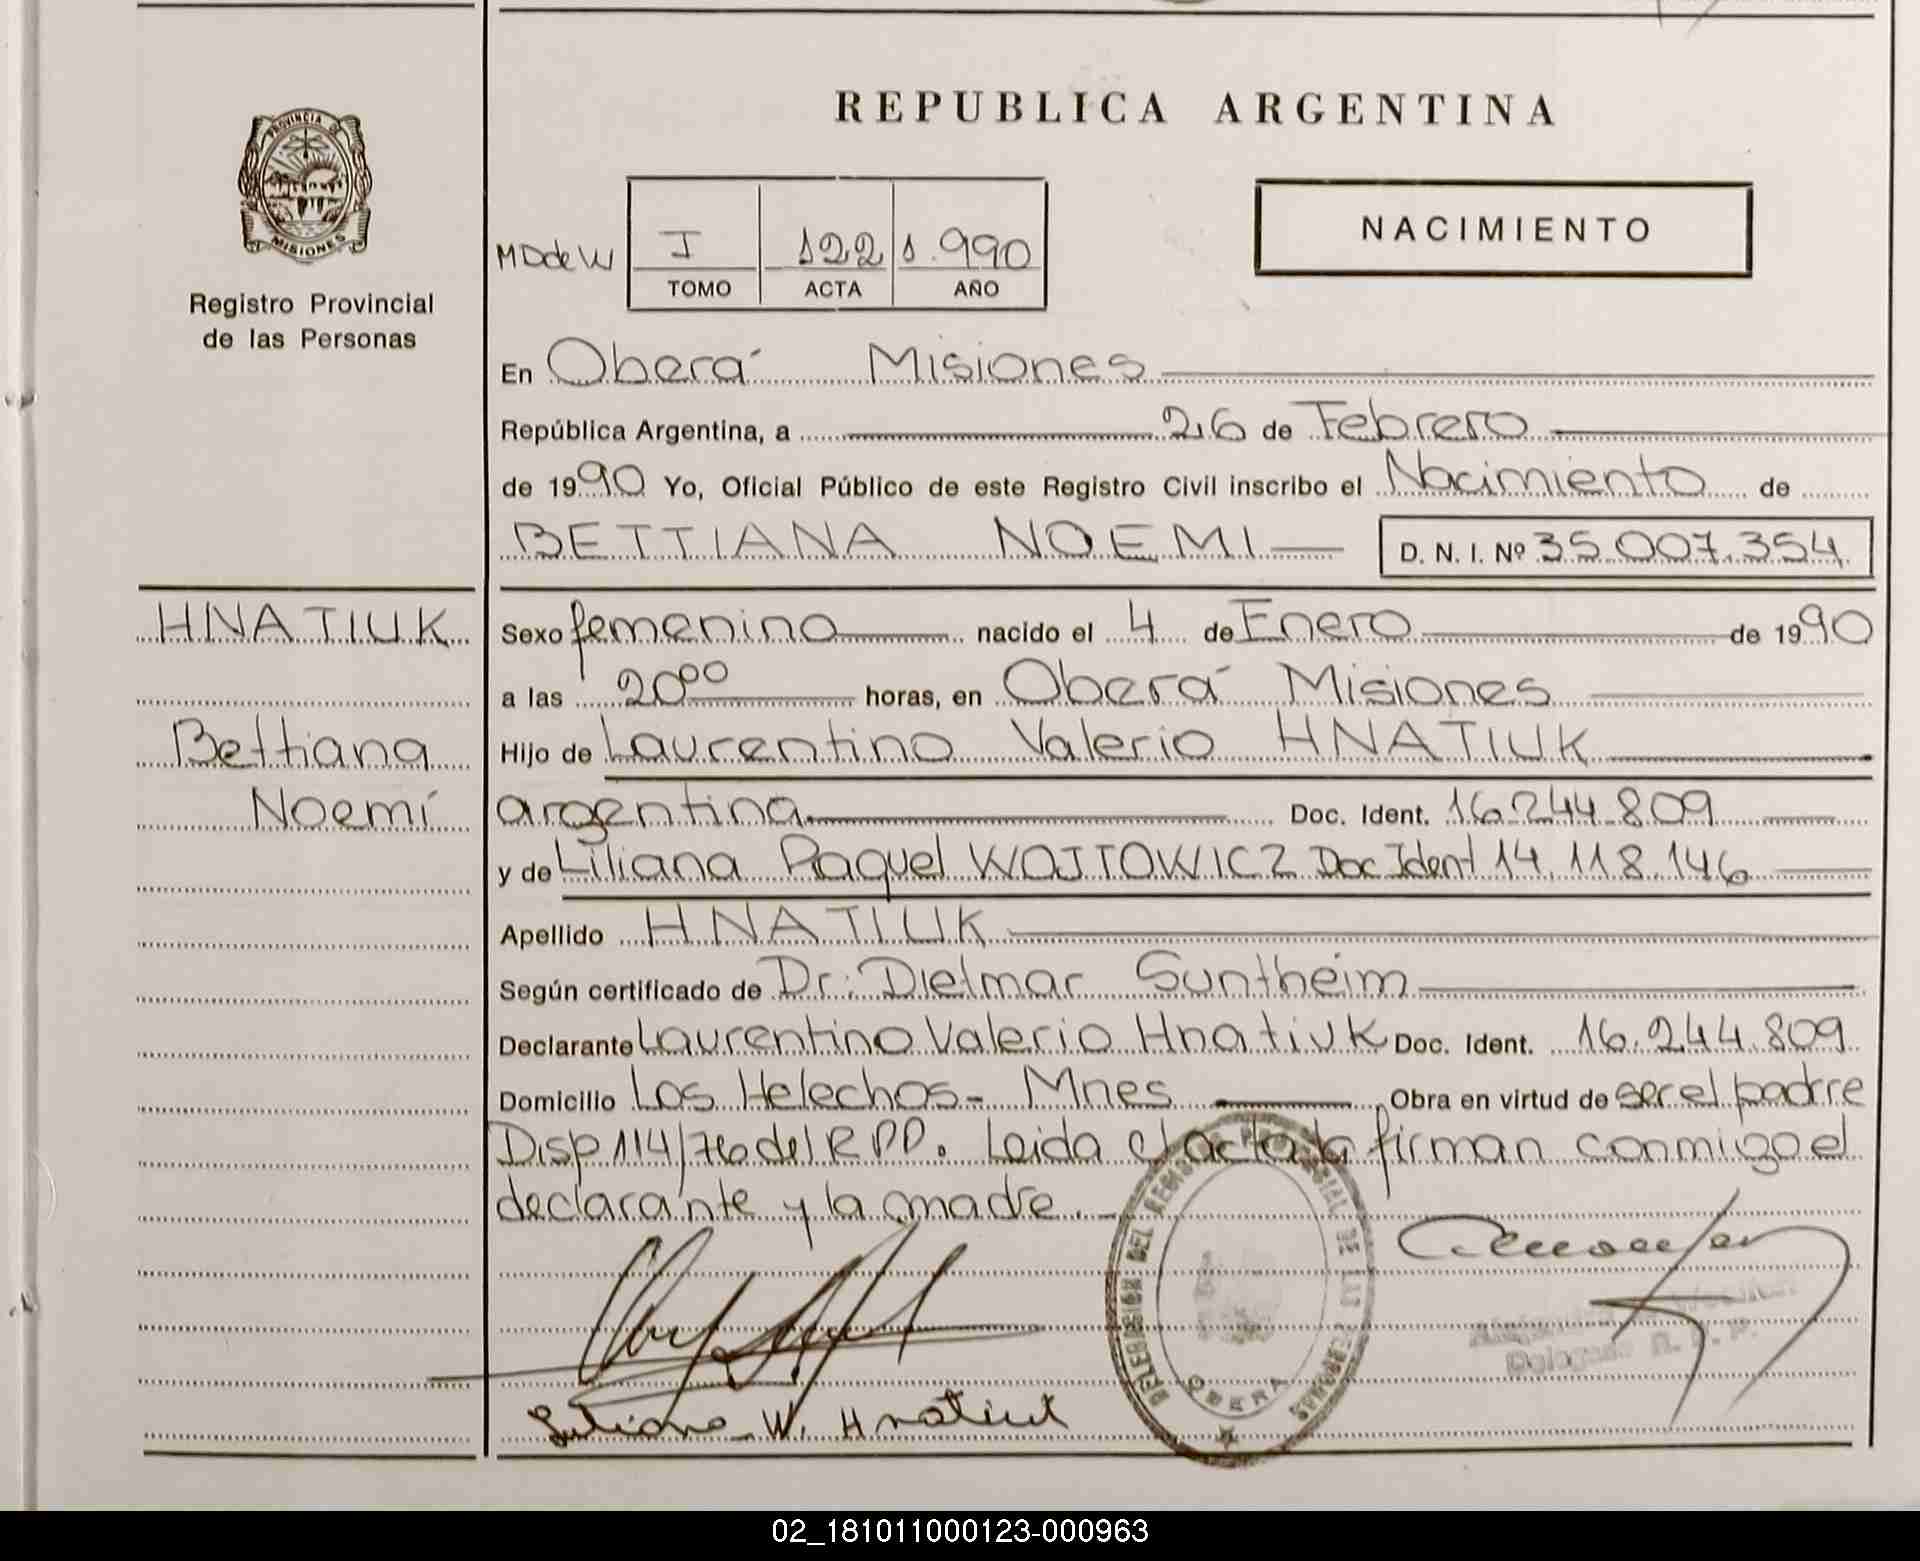 REPUBLICA ARGENTINA
PROVINCIA DE
MISIONES
Registro Provincial
de las Personas
MDdeW
I 122 1.990
TOMO ACTA AÑO
NACIMIENTO
En Oberá Misiones
República Argentina, a 26 de Febrero
de 1990 Yo, Oficial Público de este Registro Civil inscribo el Nacimiento de
BETTIANA NOEMI D. N. I. Nº 35.007.354
HNATIUK
Bettiana
Noemí
Sexo femenino nacido el 4 de Enero de 1990
a las 20⁰⁰ horas, en Oberá Misiones
Hijo de Laurentino Valerio HNATIUK
argentina Doc. Ident. 16.244.809
y de Liliana Raquel WOJTOWICZ Doc Ident 14.118.146
Apellido HNATIUK
Según certificado de Dr. Dietmar Suntheim
Declarante Laurentino Valerio Hnatiuk Doc. Ident. 16.244.809
Domicilio Los Helechos- Mnes Obra en virtud de ser el padre
Disp 114/76 del R PP. Leida el acta la firman conmigo el
declarante y la madre.
Liliana W. Hnatiuk
DELEGACION DEL REGISTRO PROVINCIAL DE LAS PERSONAS
OBERA
Delegado R. P. P.
02_181011000123-000963